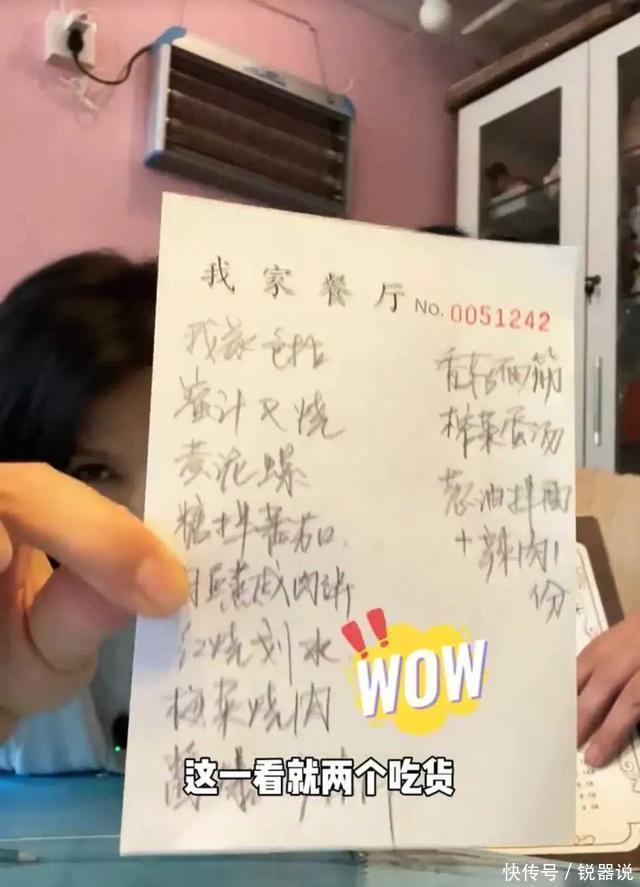 我家餐厅 No. 0051242
我家
蜜汁叉烧
黄泥螺
糖拌番茄口.
咸肉饼
红烧划水
梅菜烧肉
酱
香菇面筋
榨菜蛋汤
葱油拌面
+辣肉1
份
WOW
这一看就两个吃货
快传号 / 锐器说